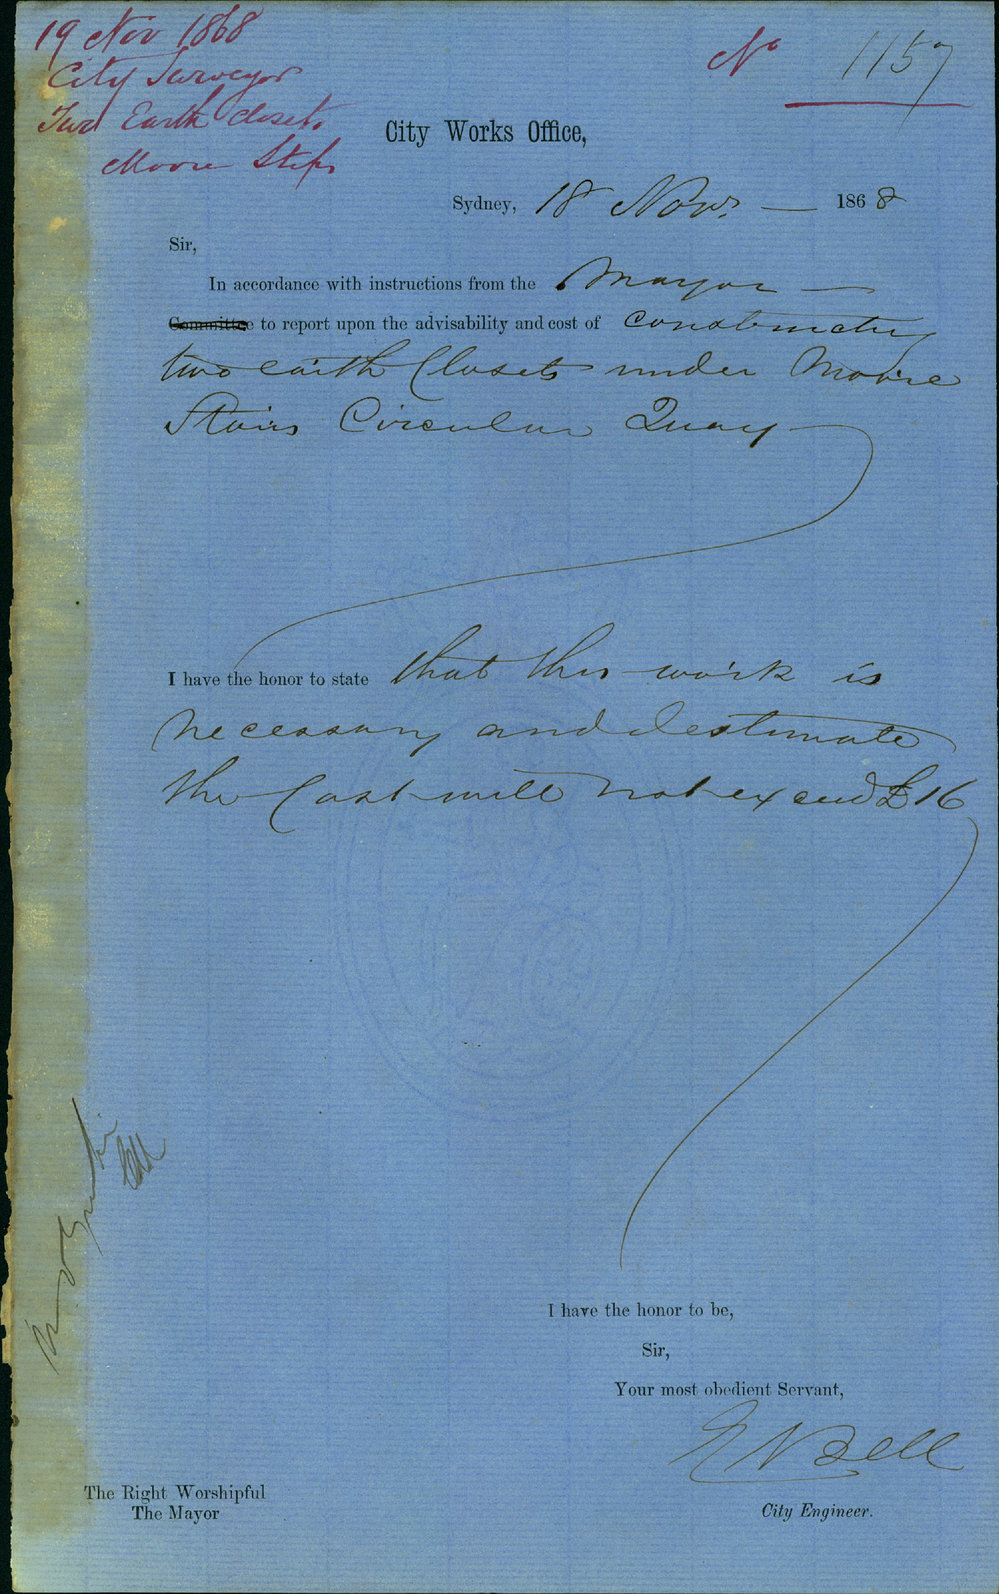 19 Nov 1868
City Surveyor
Two Earth closets
Moore Steps
No 1157
City Works Office,
Sydney, 18 Novr. — 1868
Sir,
In accordance with instructions from the Mayor —
Committee to report upon the advisability and cost of constructing
two earth Closets under Moore
Stairs Circular Quay
I have the honor to state that this work is
necessary and I estimate
the Cost will not exceed £16
I have the honor to be,
Sir,
Your most obedient Servant,
E Bell
City Engineer.
The Right Worshipful
The Mayor